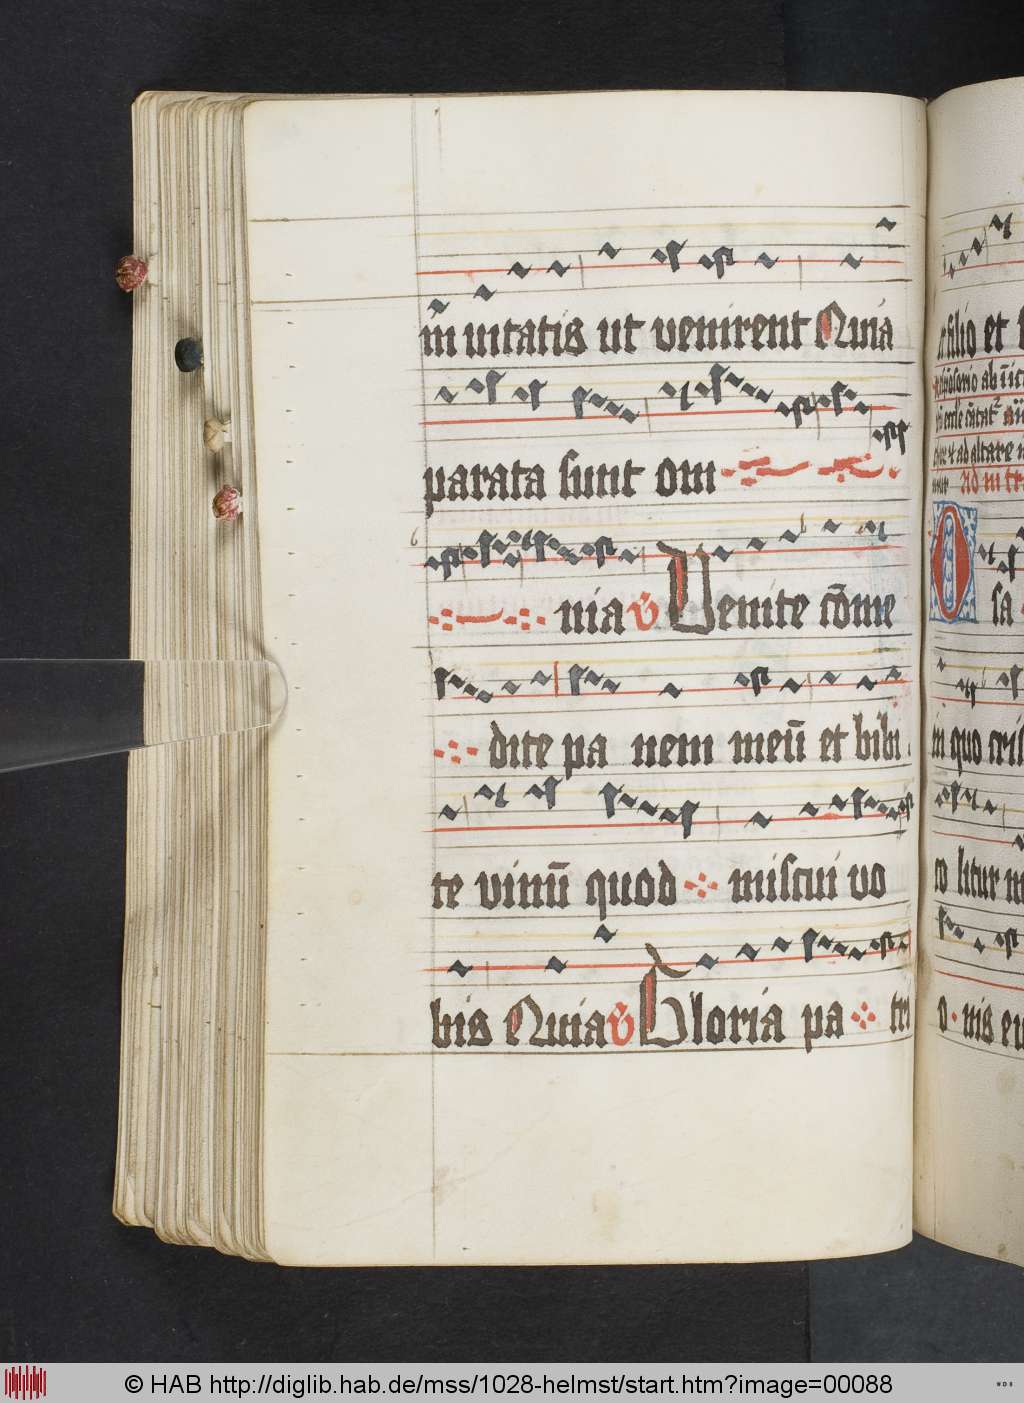 in uitatis ut venirent Quia
parata sunt om
nia V Venite cōme
dite pa nem meū et bibi
te vinū quod miscui vo
bis Quia V Gloria pa tri
filio et
sa
in quo cris
co litur
o nis eu
© HAB http://diglib.hab.de/mss/1028-helmst/start.htm?image=00088